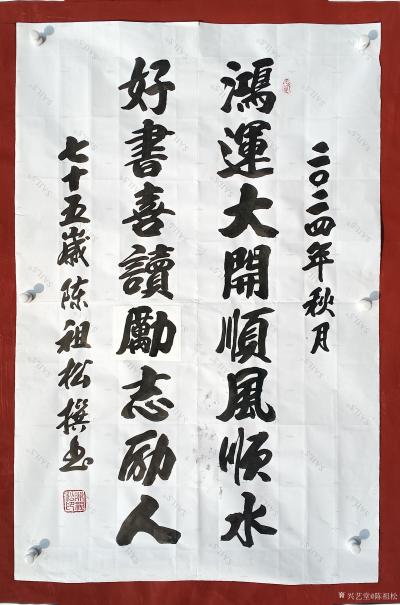 二〇二四年秋月
鴻運大開順風順水
好書喜讀勵志励人
七十五歲陈祖松撰书
兴艺堂@陈祖松